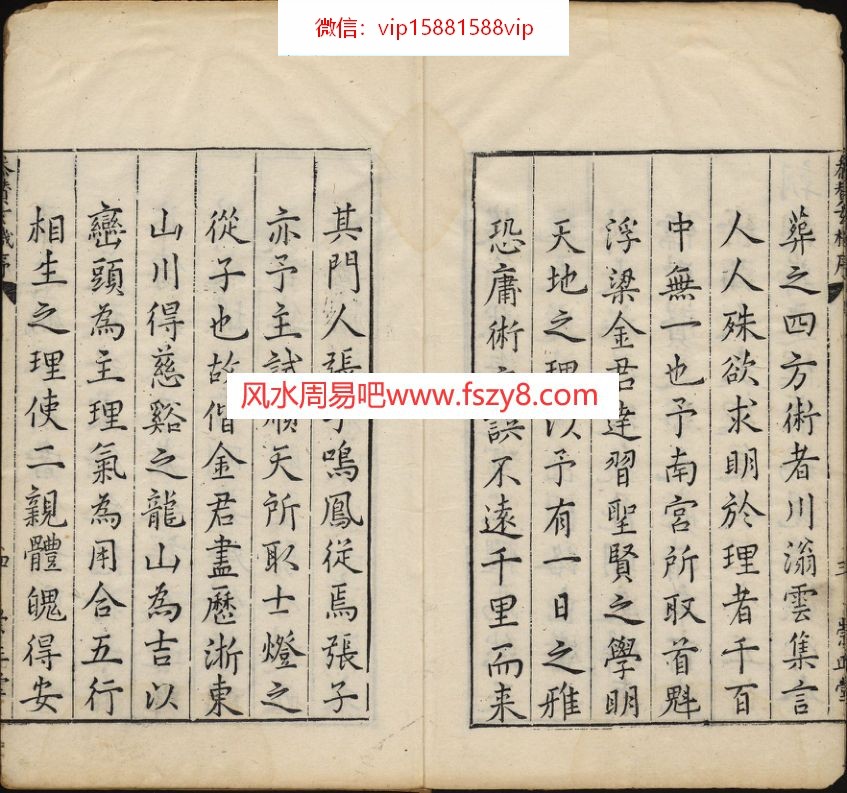 微信：vip15881588vip
風水周易吧www.fszy8.com
參贊玄機序
三
崇正堂
葬之四方術者川滃雲集言
人人殊欲求明於理者千百
中無一也予南宮所取首魁
浮梁金君達習聖賢之學明
天地之理以予有一日之雅
恐庸術之誤不遠千里而来
其門人張子鳴鳳従焉張子
亦予主試順天所取士燈之
從子也故偕金君盡歷浙東
山川得慈谿之龍山為吉以
巒頭為主理氣為用合五行
相生之理使二親體魄得安
參贊玄機序
四
崇正堂